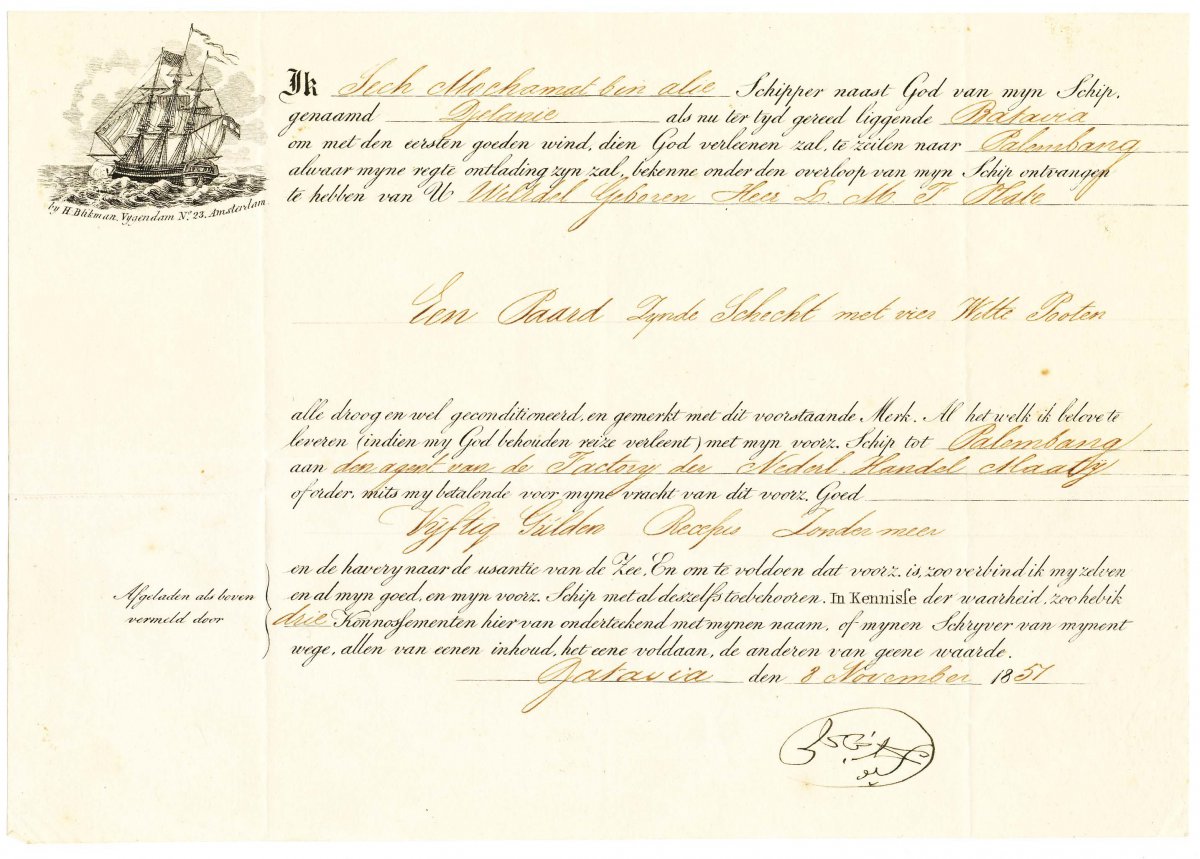 by H. Blikman, Vygendam N.º 23, Amsterdam.
Ik Sech Mochamat bin alie Schipper naast God van myn Schip,
genaamd Djelanie als nu ter tyd gereed liggende Batavia
om met den eersten goeden wind, dien God verleenen zal, te zeilen naar Palembang
alwaar myne regte ontlading zyn zal, bekenne onder den overloop van myn Schip ontvangen
te hebben van U Weledel Geboren Heer L. M. F.
Een Paard Zynde Schecht met vier Witte Pooten
alle droog en wel geconditioneerd, en gemerkt met dit voorstaande Merk. Al het welk ik belove te
leveren (indien my God behouden reize verleent) met myn voorz. Schip tot Palembang
aan den agent van de Factory der Nederl. Handel Maatßy
of order, mits my betalende voor myne vracht van dit voorz. Goed
Vyftig Gulden Recepis Zonder meer
en de havery naar de usantie van de Zee, En om te voldoen dat voorz. is, zoo verbind ik my zelven
en al myn goed, en myn voorz. Schip met al deszelfs toebehooren. In Kennisse der waarheid, zoo heb ik
drie Konnossementen hier van onderteekend met mynen naam, of mynen Schryver van mynent
wege, allen van eenen inhoud, het eene voldaan, de anderen van geene waarde.
Afgeladen als boven
vermeld door
Batavia den 8 November 1851